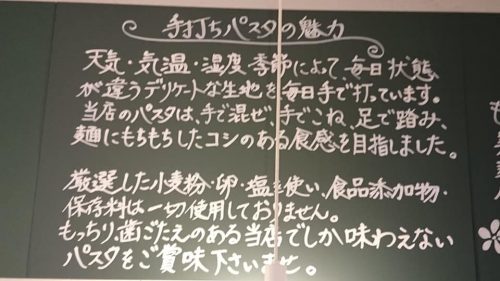 手打ちパスタの魅力
天気・気温・湿度季節によって、毎日状態
が違うデリケートな生地を毎日手で打っています。
当店のパスタは、手で混ぜ、手でこね、足で踏み、
麺にもちもちしたコシのある食感を目指しました。
厳選した小麦粉・卵・塩を使い、食品添加物・
保存料は一切使用しておりません。
もっちり、歯ごたえのある当店でしか味わえない
パスタをご賞味下さいませ。